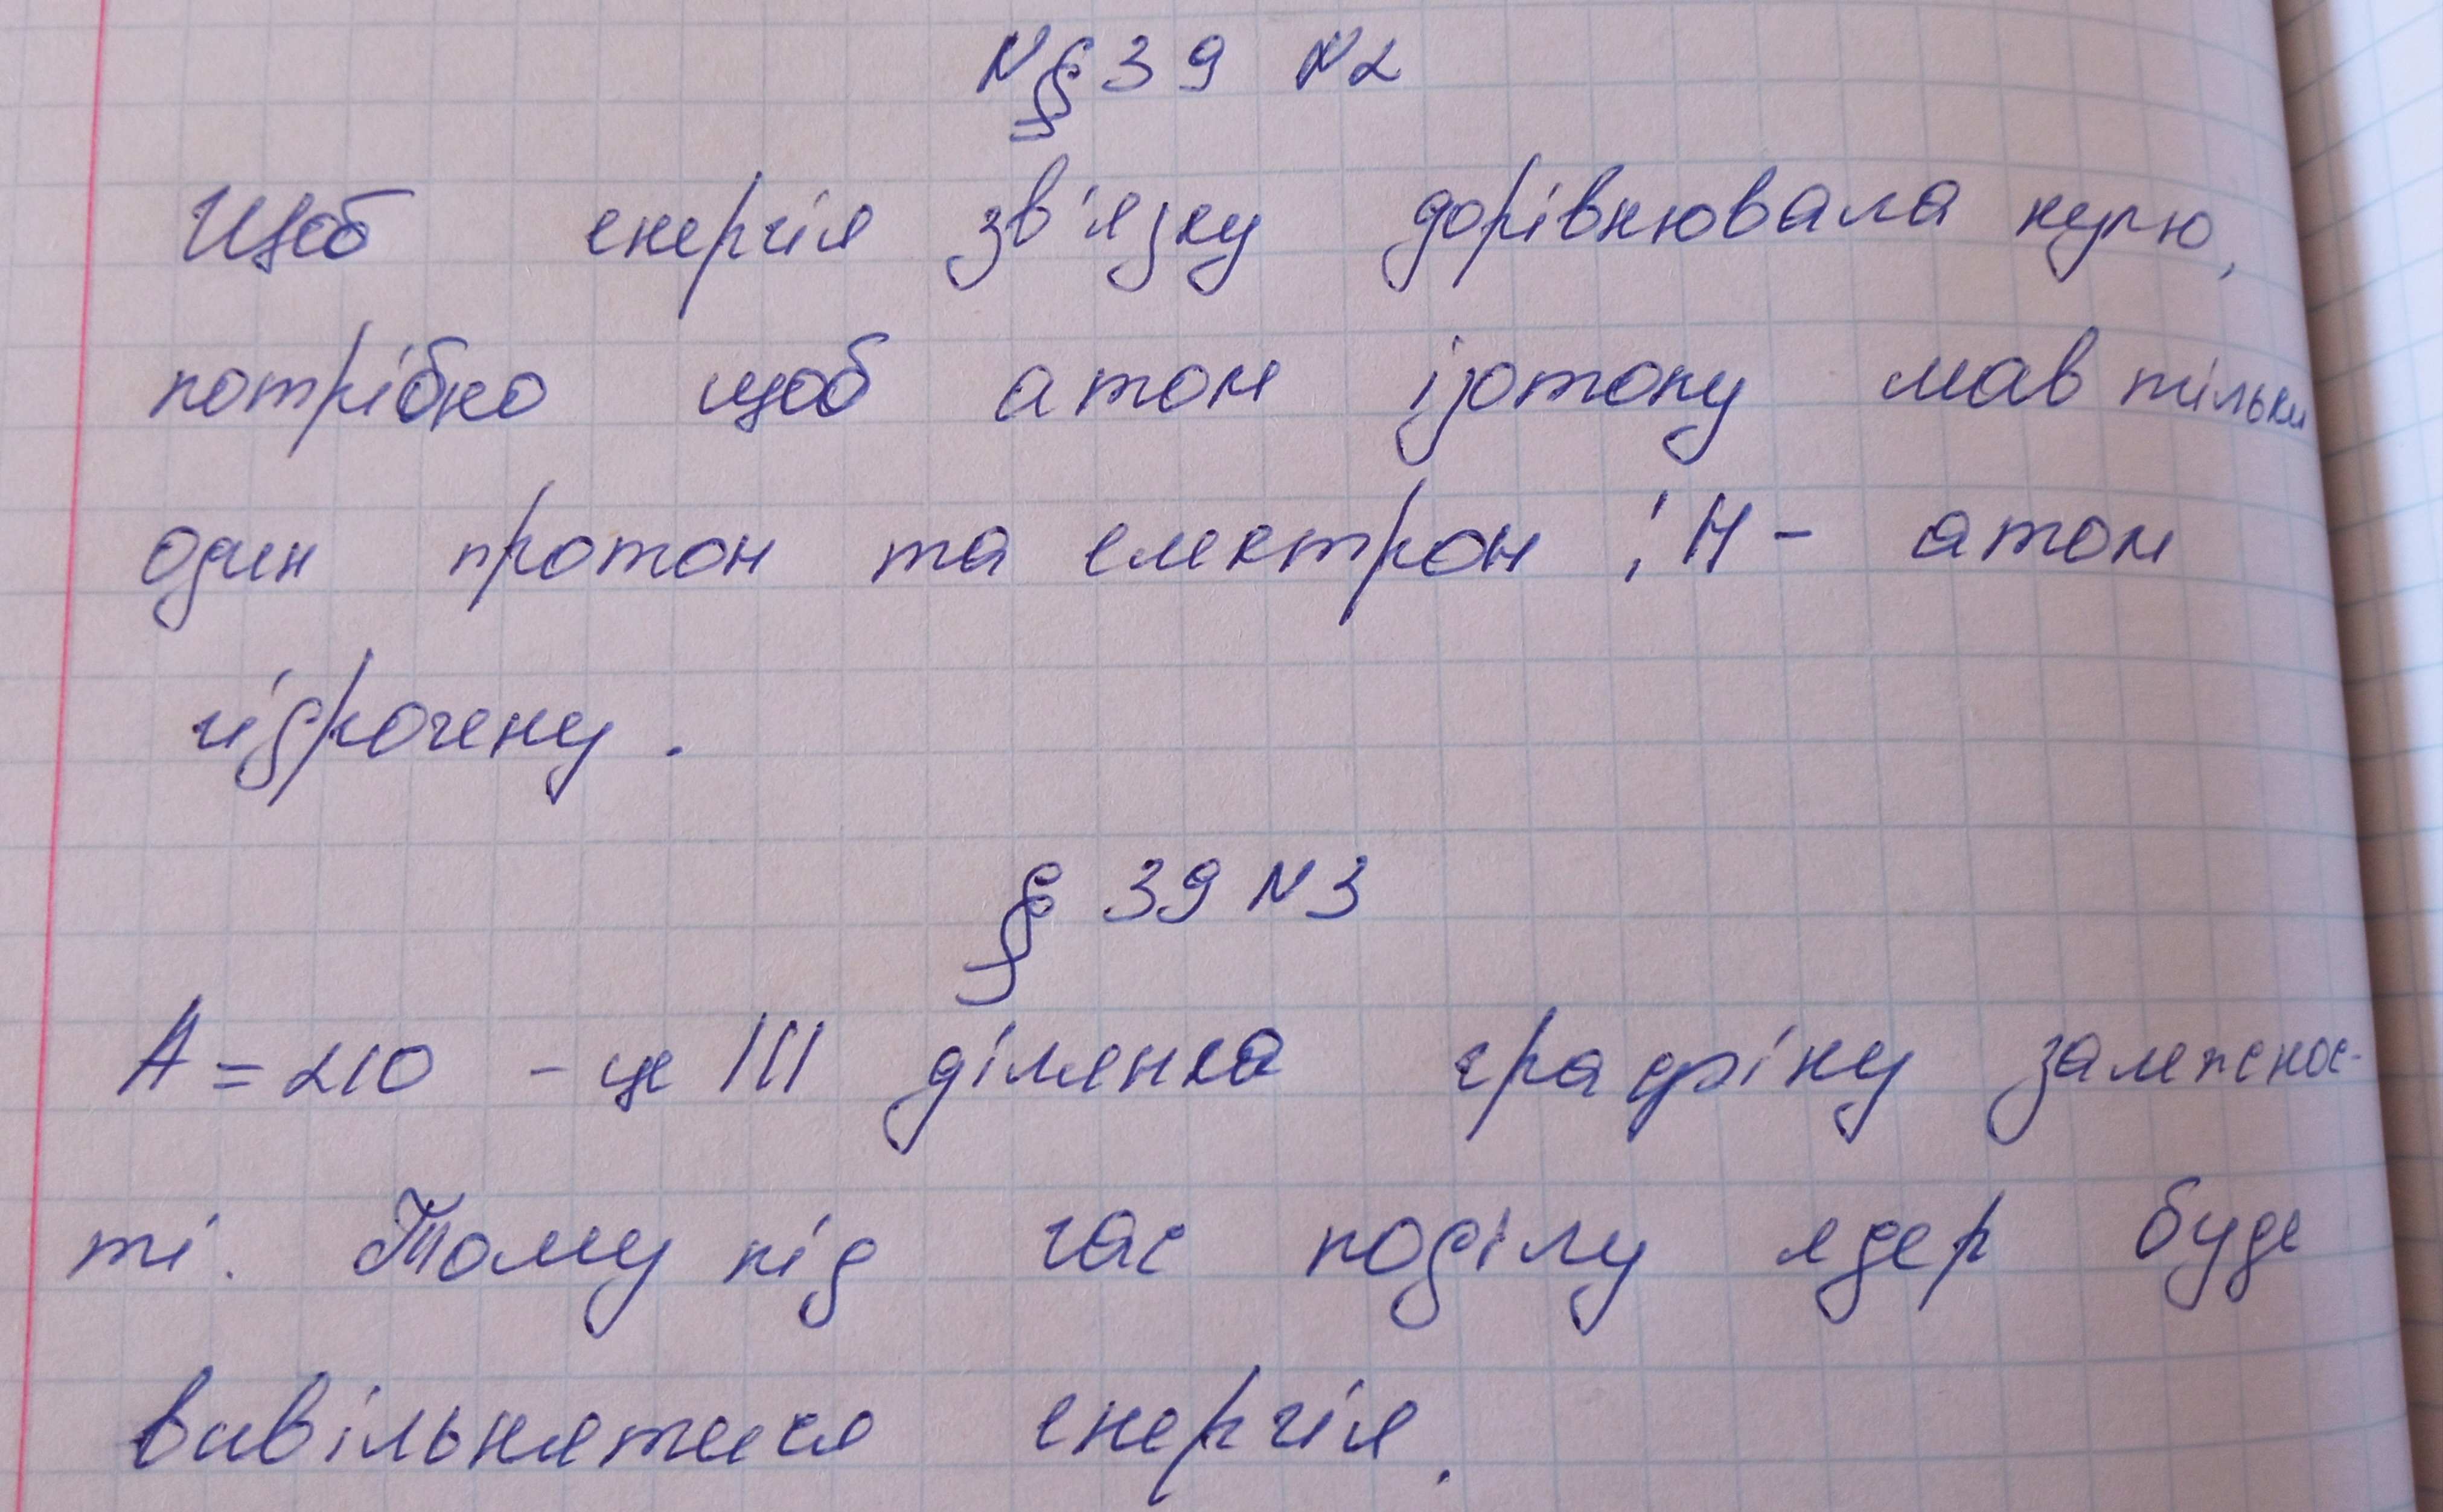 N§39 N2
Щоб енергія зв'язку дорівнювала нулю,
потрібно щоб атом ізотопу мав тільки
один протон та електрон ¹₁H - атом
гідрогену.
§ 39 N3
A = 210 - це III ділянка графіку залежнос-
ті. Тому під час поділу ядер буде
вивільнятися енергія.